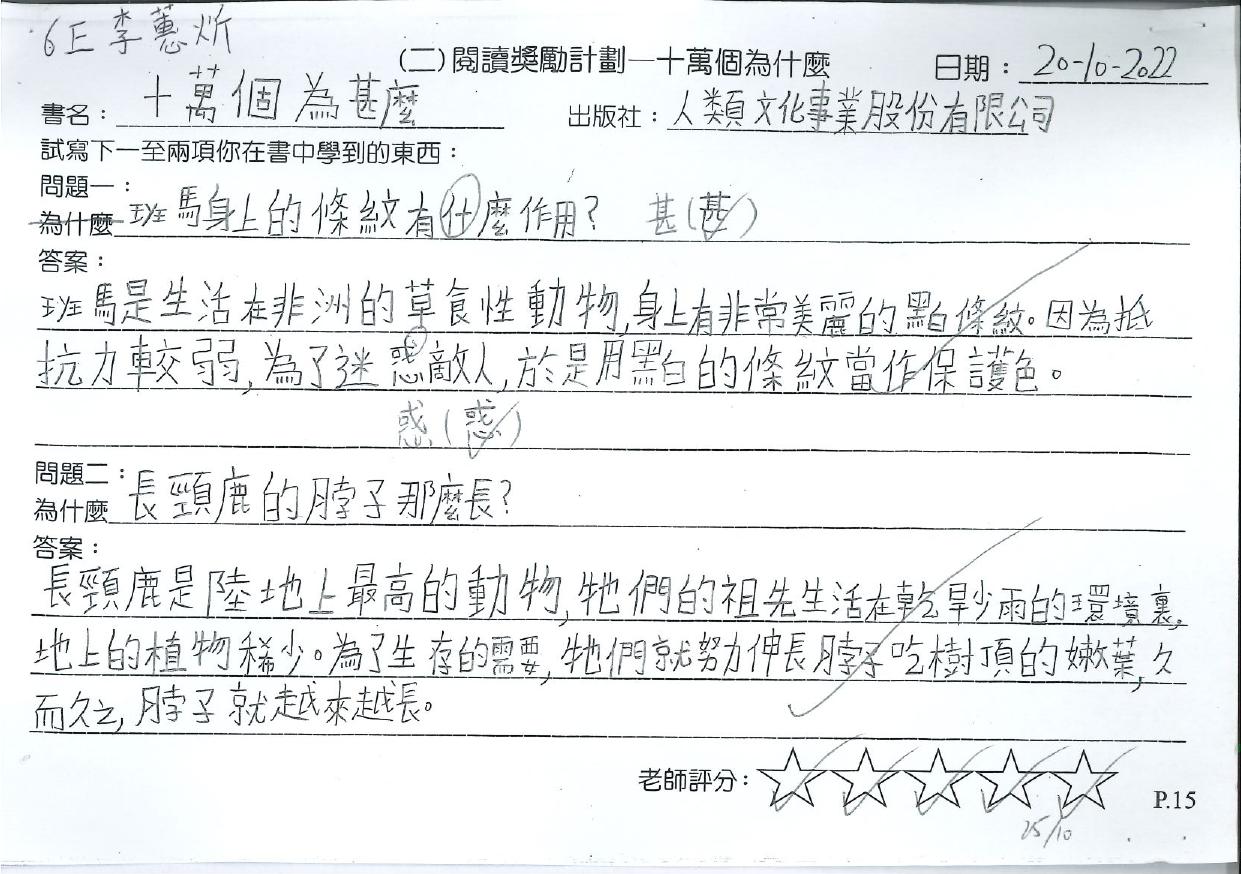 6E 李蕙炘
(二)閱讀獎勵計劃—十萬個為什麼 日期：20-10-2022
書名：十萬個為甚麼 出版社：人類文化事業股份有限公司
試寫下一至兩項你在書中學到的東西：
問題一：
為什麼 班馬身上的條紋有什麼作用？ 甚(甚)
答案：
班馬是生活在非洲的草食性動物,身上有非常美麗的黑白條紋。因為抵
抗力較弱,為了迷惑敵人,於是用黑白的條紋當作保護色。
惑(惑)
問題二：
為什麼 長頸鹿的脖子那麼長？
答案：
長頸鹿是陸地上最高的動物,牠們的祖先生活在乾旱少雨的環境裏,
地上的植物稀少。為了生存的需要,牠們就努力伸長脖子吃樹頂的嫩葉,久
而久之,脖子就越來越長。
老師評分：
25/10
P.15